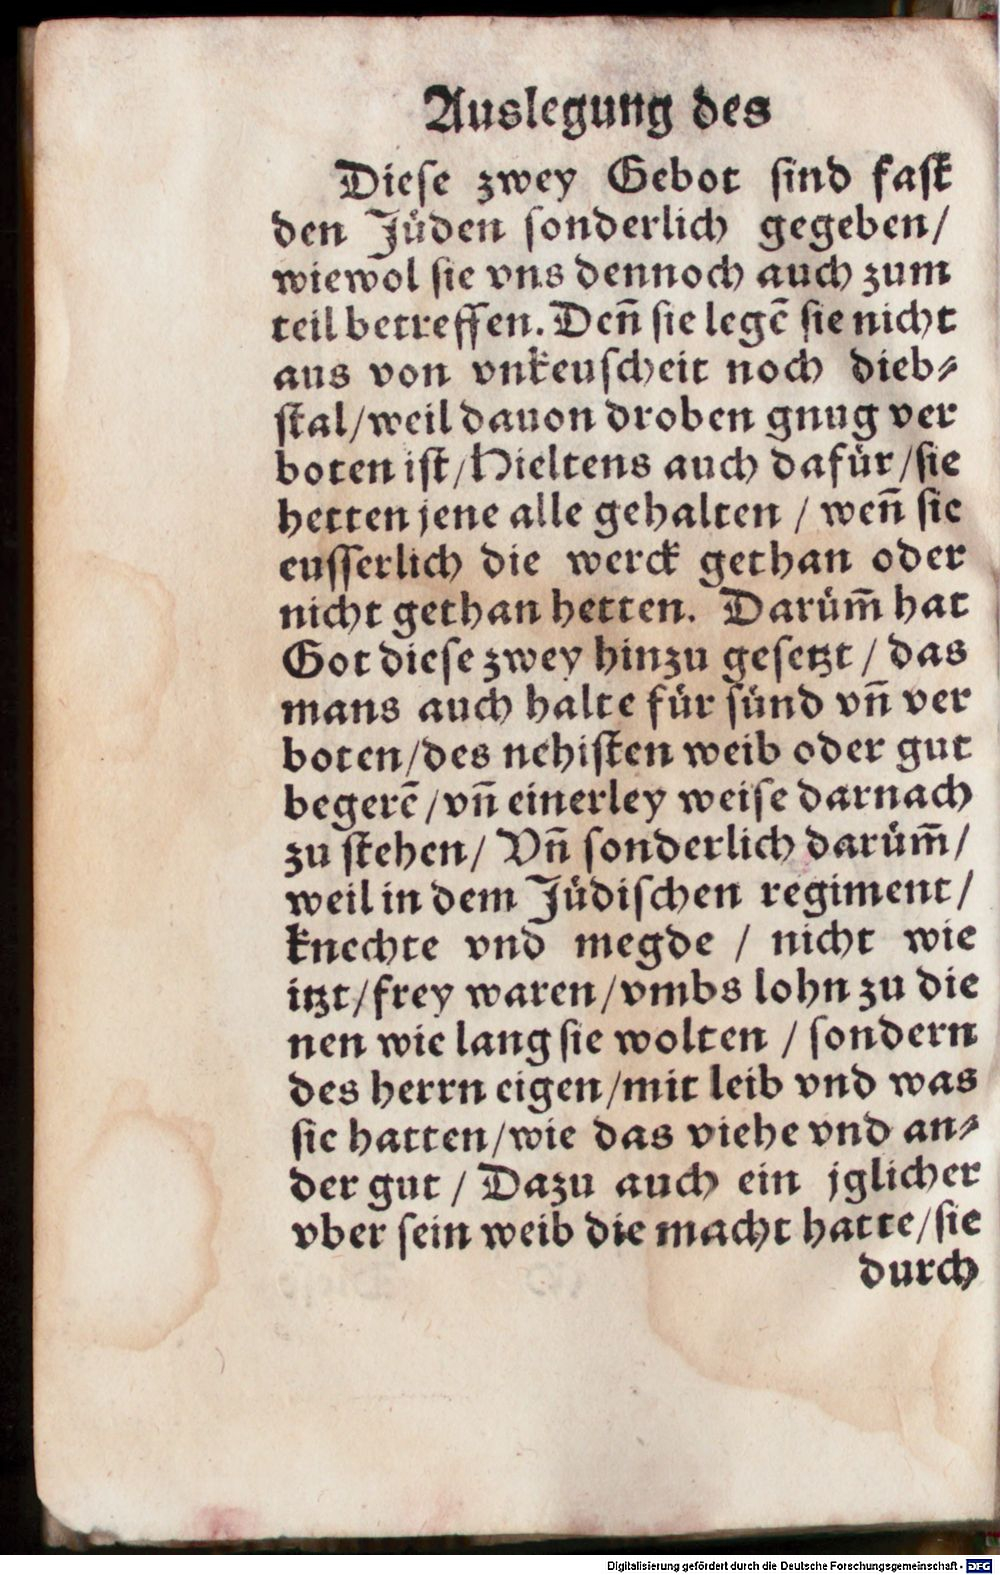 Auslegung des
Diese zwey Gebot sind fast
den Jüden sonderlich gegeben/
wiewol sie vns dennoch auch zum
teil betreffen. Deñ sie legē sie nicht
aus von vnkeuscheit noch dieb⸗
stal/weil dauon droben gnug ver
boten ist/Hieltens auch dafür/sie
hetten jene alle gehalten / weñ sie
eusserlich die werck gethan oder
nicht gethan hetten. Darüm̄ hat
Got diese zwey hinzu gesetzt / das
mans auch halte für sünd vñ ver
boten/des nehisten weib oder gut
begerē/vñ einerley weise darnach
zu stehen/ Vñ sonderlich darüm̄/
weil in dem Jüdischen regiment/
knechte vnd megde / nicht wie
itzt/frey waren/vmbs lohn zu die
nen wie lang sie wolten / sondern
des herrn eigen/mit leib vnd was
sie hatten/wie das viehe vnd an⸗
der gut / Dazu auch ein jglicher
vber sein weib die macht hatte/sie
durch
Digitalisierung gefördert durch die Deutsche Forschungsgemeinschaft - DFG